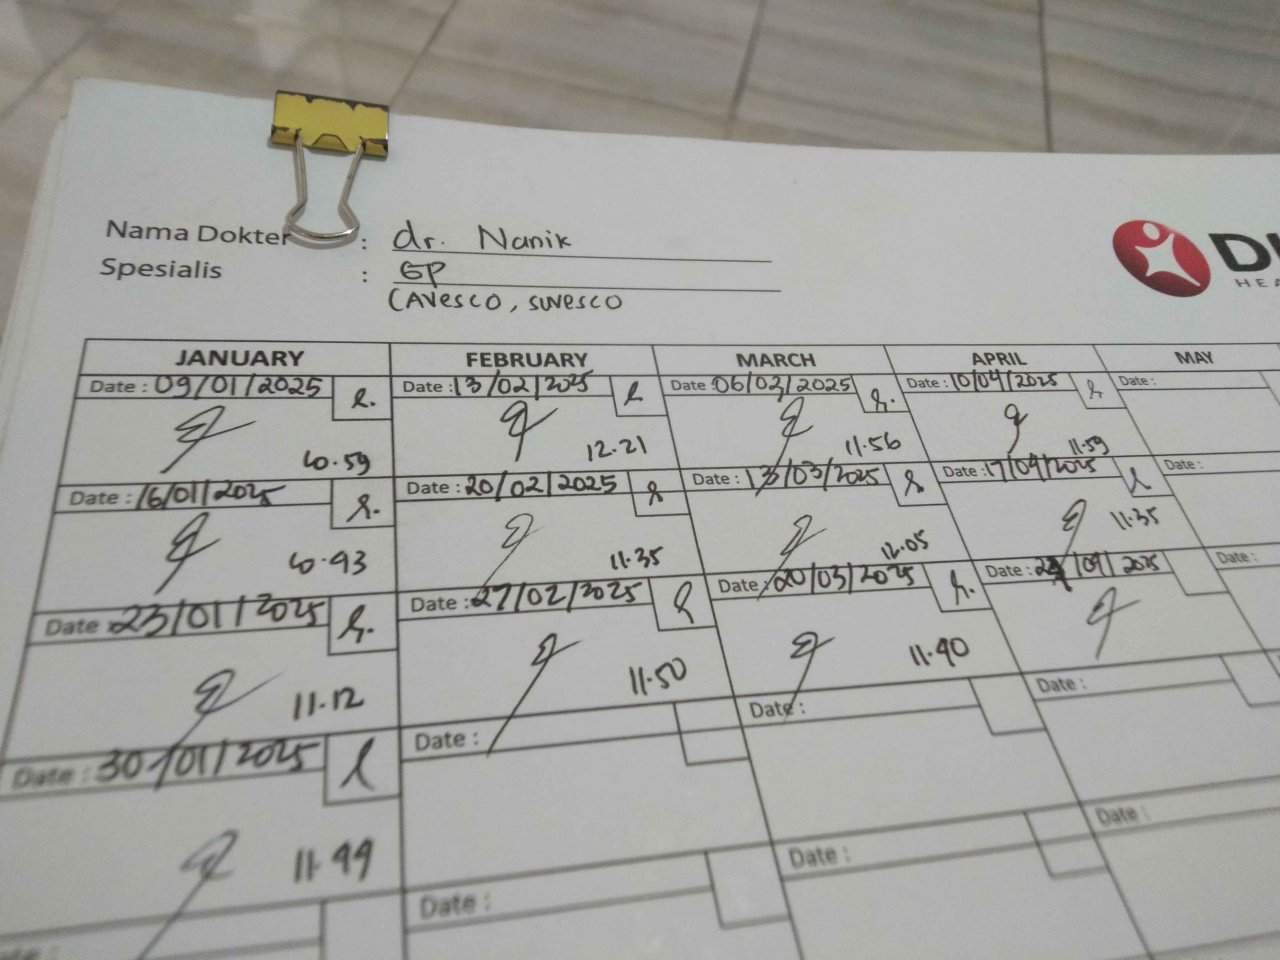 Nama Dokter : dr. Nanik
Spesialis : GP
CAVESCO, SUVESCO
JANUARY FEBRUARY MARCH APRIL MAY
Date : 09/01/2025 Date : 13/02/2025 Date : 06/03/2025 Date : 10/04/2025 Date :
10.59 12.21 11.56 11.59
Date : 16/01/2025 Date : 20/02/2025 Date : 13/03/2025 Date : 17/04/2025 Date :
10.43 11.35 12.05 11.35
Date : 23/01/2025 Date : 27/02/2025 Date : 20/03/2025 Date : 24/04/2025 Date :
11.12 11.50 11.40
Date : 30/01/2025 Date : Date : Date :
11.44
Date : Date : Date :